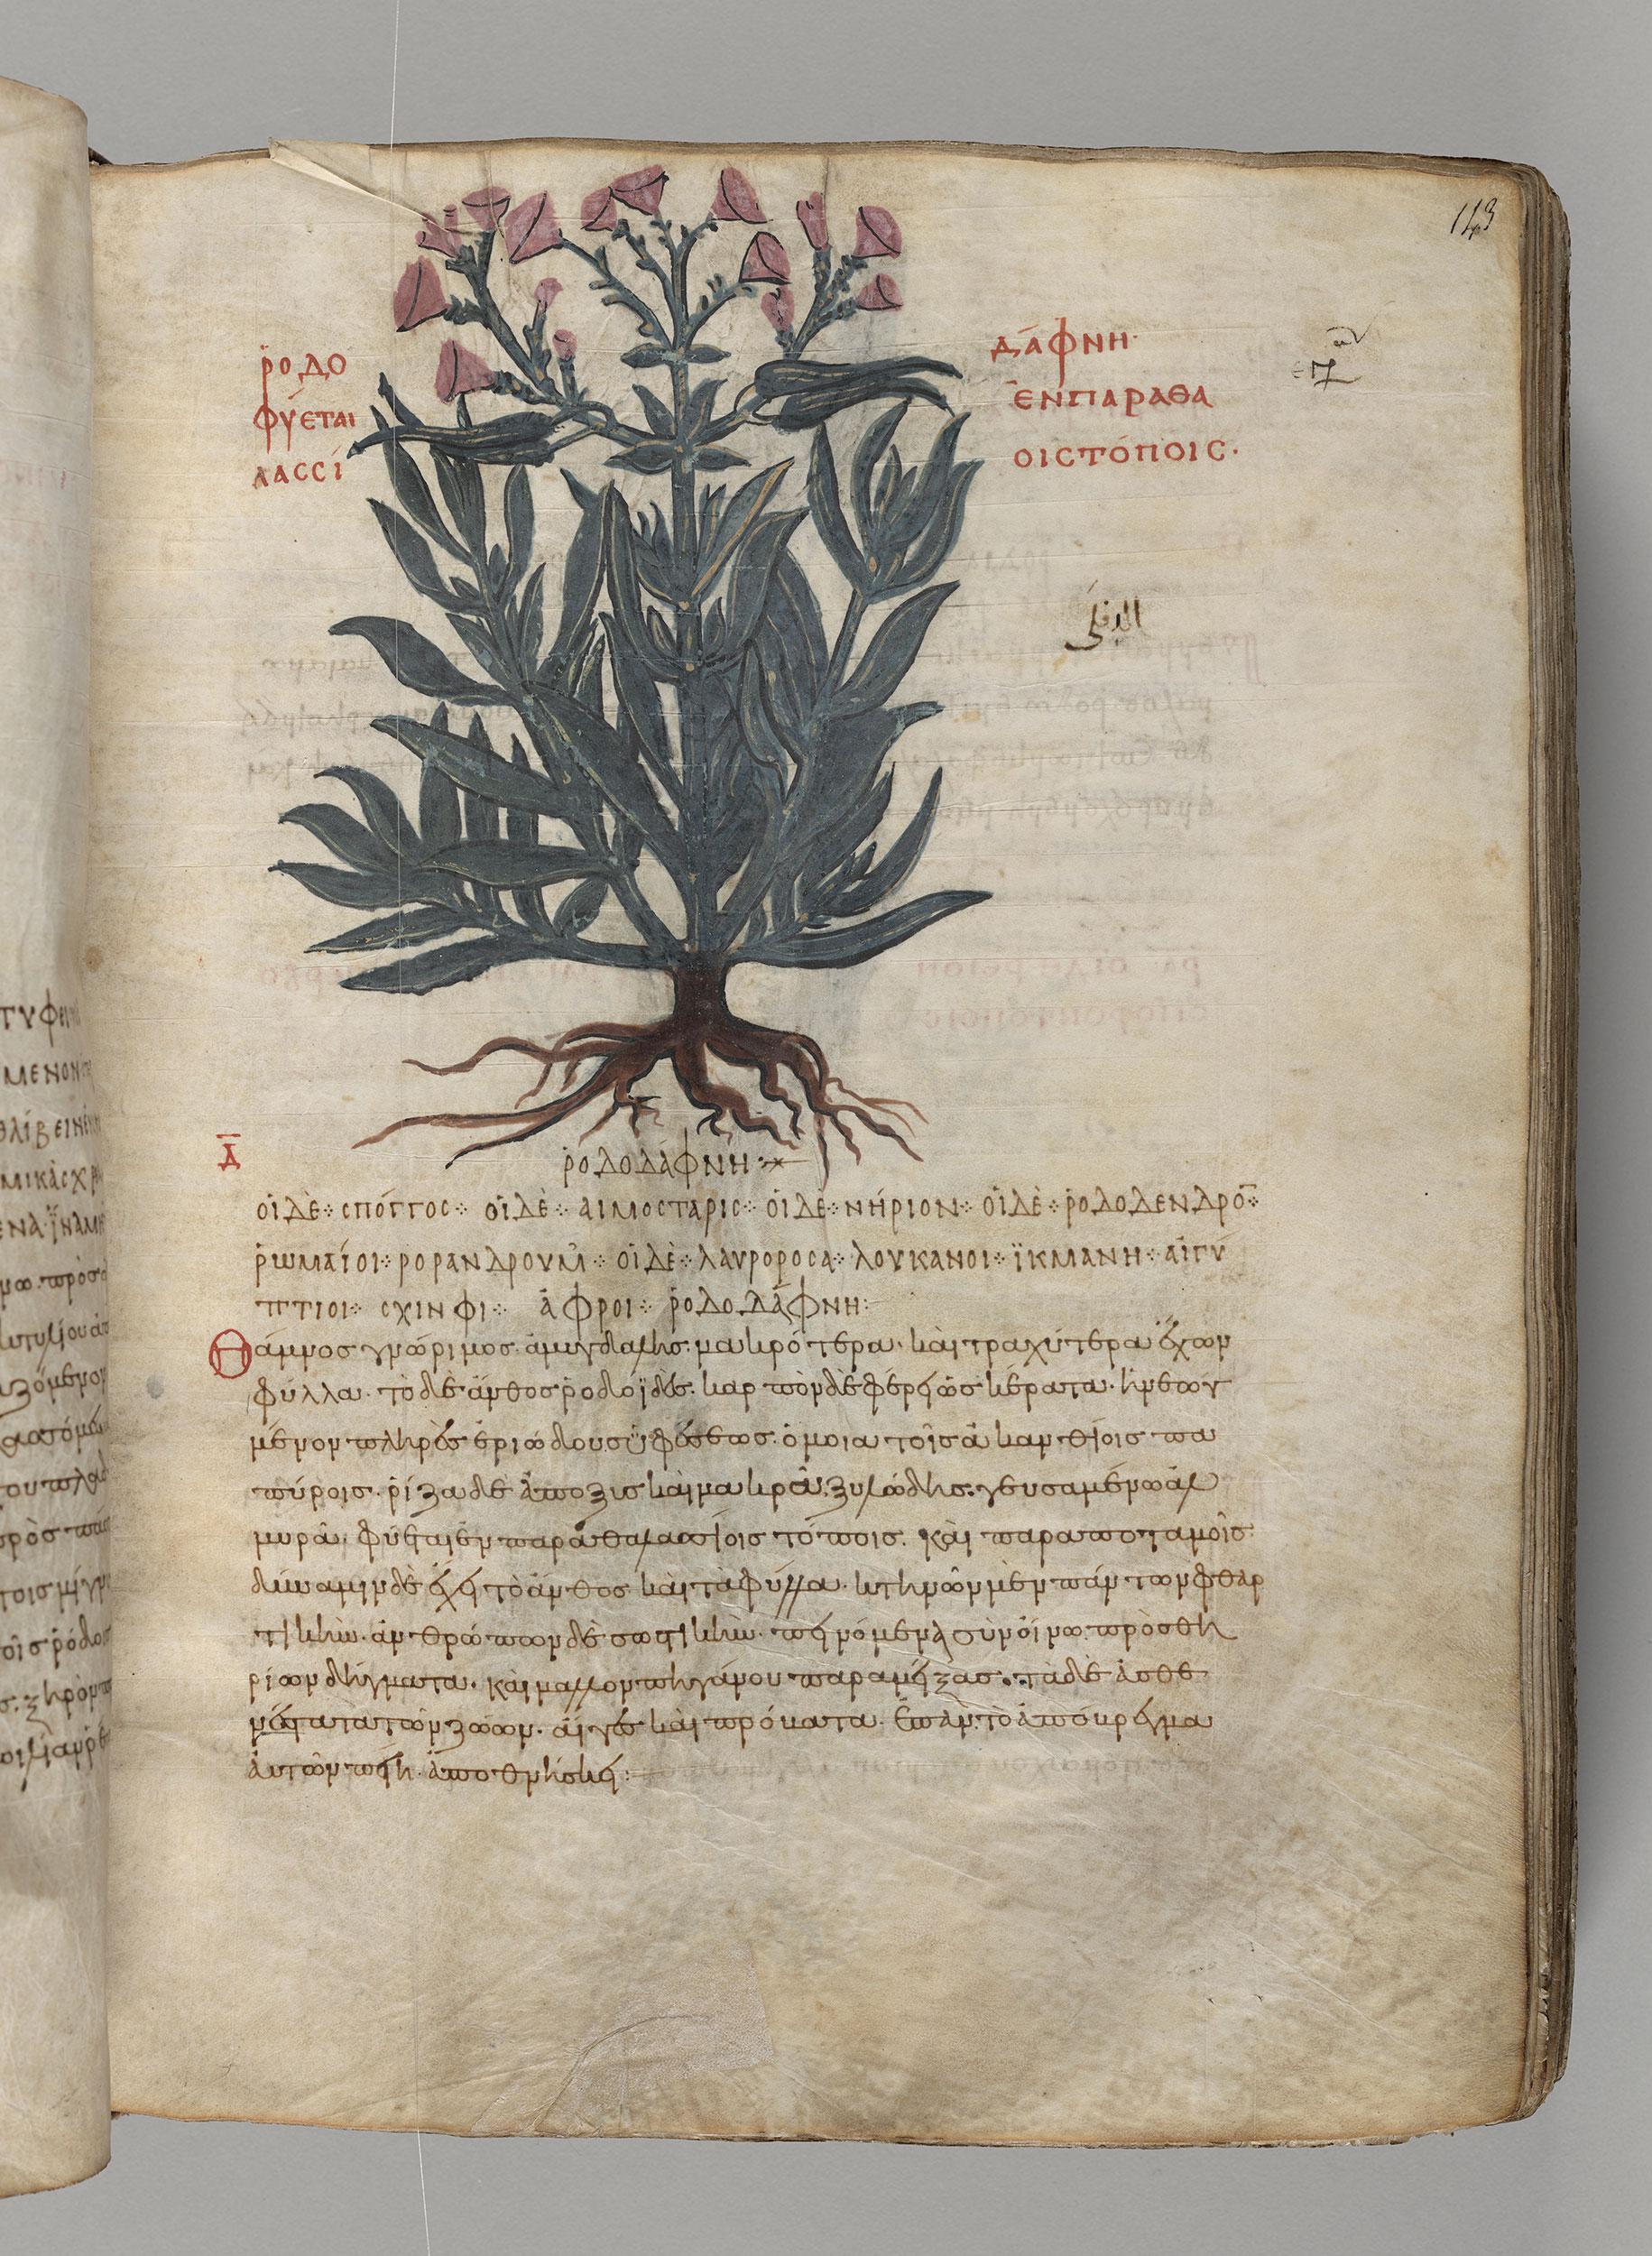 143
ῥοδο δάφνη·
φύεται ἐνπαραθα
λασσί οιστόποις·
Δ
ῥοδοδάφνη
οἱ δὲ · σπόγγος · οἱ δὲ · αιμοσταρις · οἱ δὲ · νήριον · οἱ δὲ · ῥοδοδενδρο
ῥωμαίοι · ρορανδρουμ · οἱ δὲ · λαυροροσα · λουκανοι · ϊκμανη · αἰγύ
πτιοι · σχινφι · ἀφροι · ῥοδοδάφνη :
Θάμνος γνώριμος ἀμυγδαλῆς μακρότερα · καὶ τραχύτερα ἔχων
φύλλα · τὸ δὲ ἄνθος ῥοδοϊδὲς · καρπὸν δὲ φέρει ὡς κέρατα ·
μένον πλῆρες ἐριώδους φύσεως ὁμοια τοῖς ἀκανθίοις πα
πύροις · ῥίζα δὲ ἄποξις καὶ μακρὰ, ξυλώδης · γευσαμένω ἁλ
μυρὰ · φύεται ἐν παραθαλασσίοις τόποις · καὶ παραποταμοῖς
δύναμιν δὲ ἔχει τὸ ἄνθος καὶ τὰ φύλλα · κτηνῶν μὲν πάντων φθαρ
τικὴν · ἀνθρώπων δὲ σωστικὴν · πεινόμενα σὺν οἴνω πρὸς θη
ρίων δήγματα · καὶ μαλλον πηγάνου παραμείξας · τὰ δὲ ἀσθε
νέστατα τῶν ζώων · αἶγες καὶ πρόβατα · ἐπὰν τὸ ἀπόβρεγμα
αὐτῶν πίη · ἀποθνήσκει :